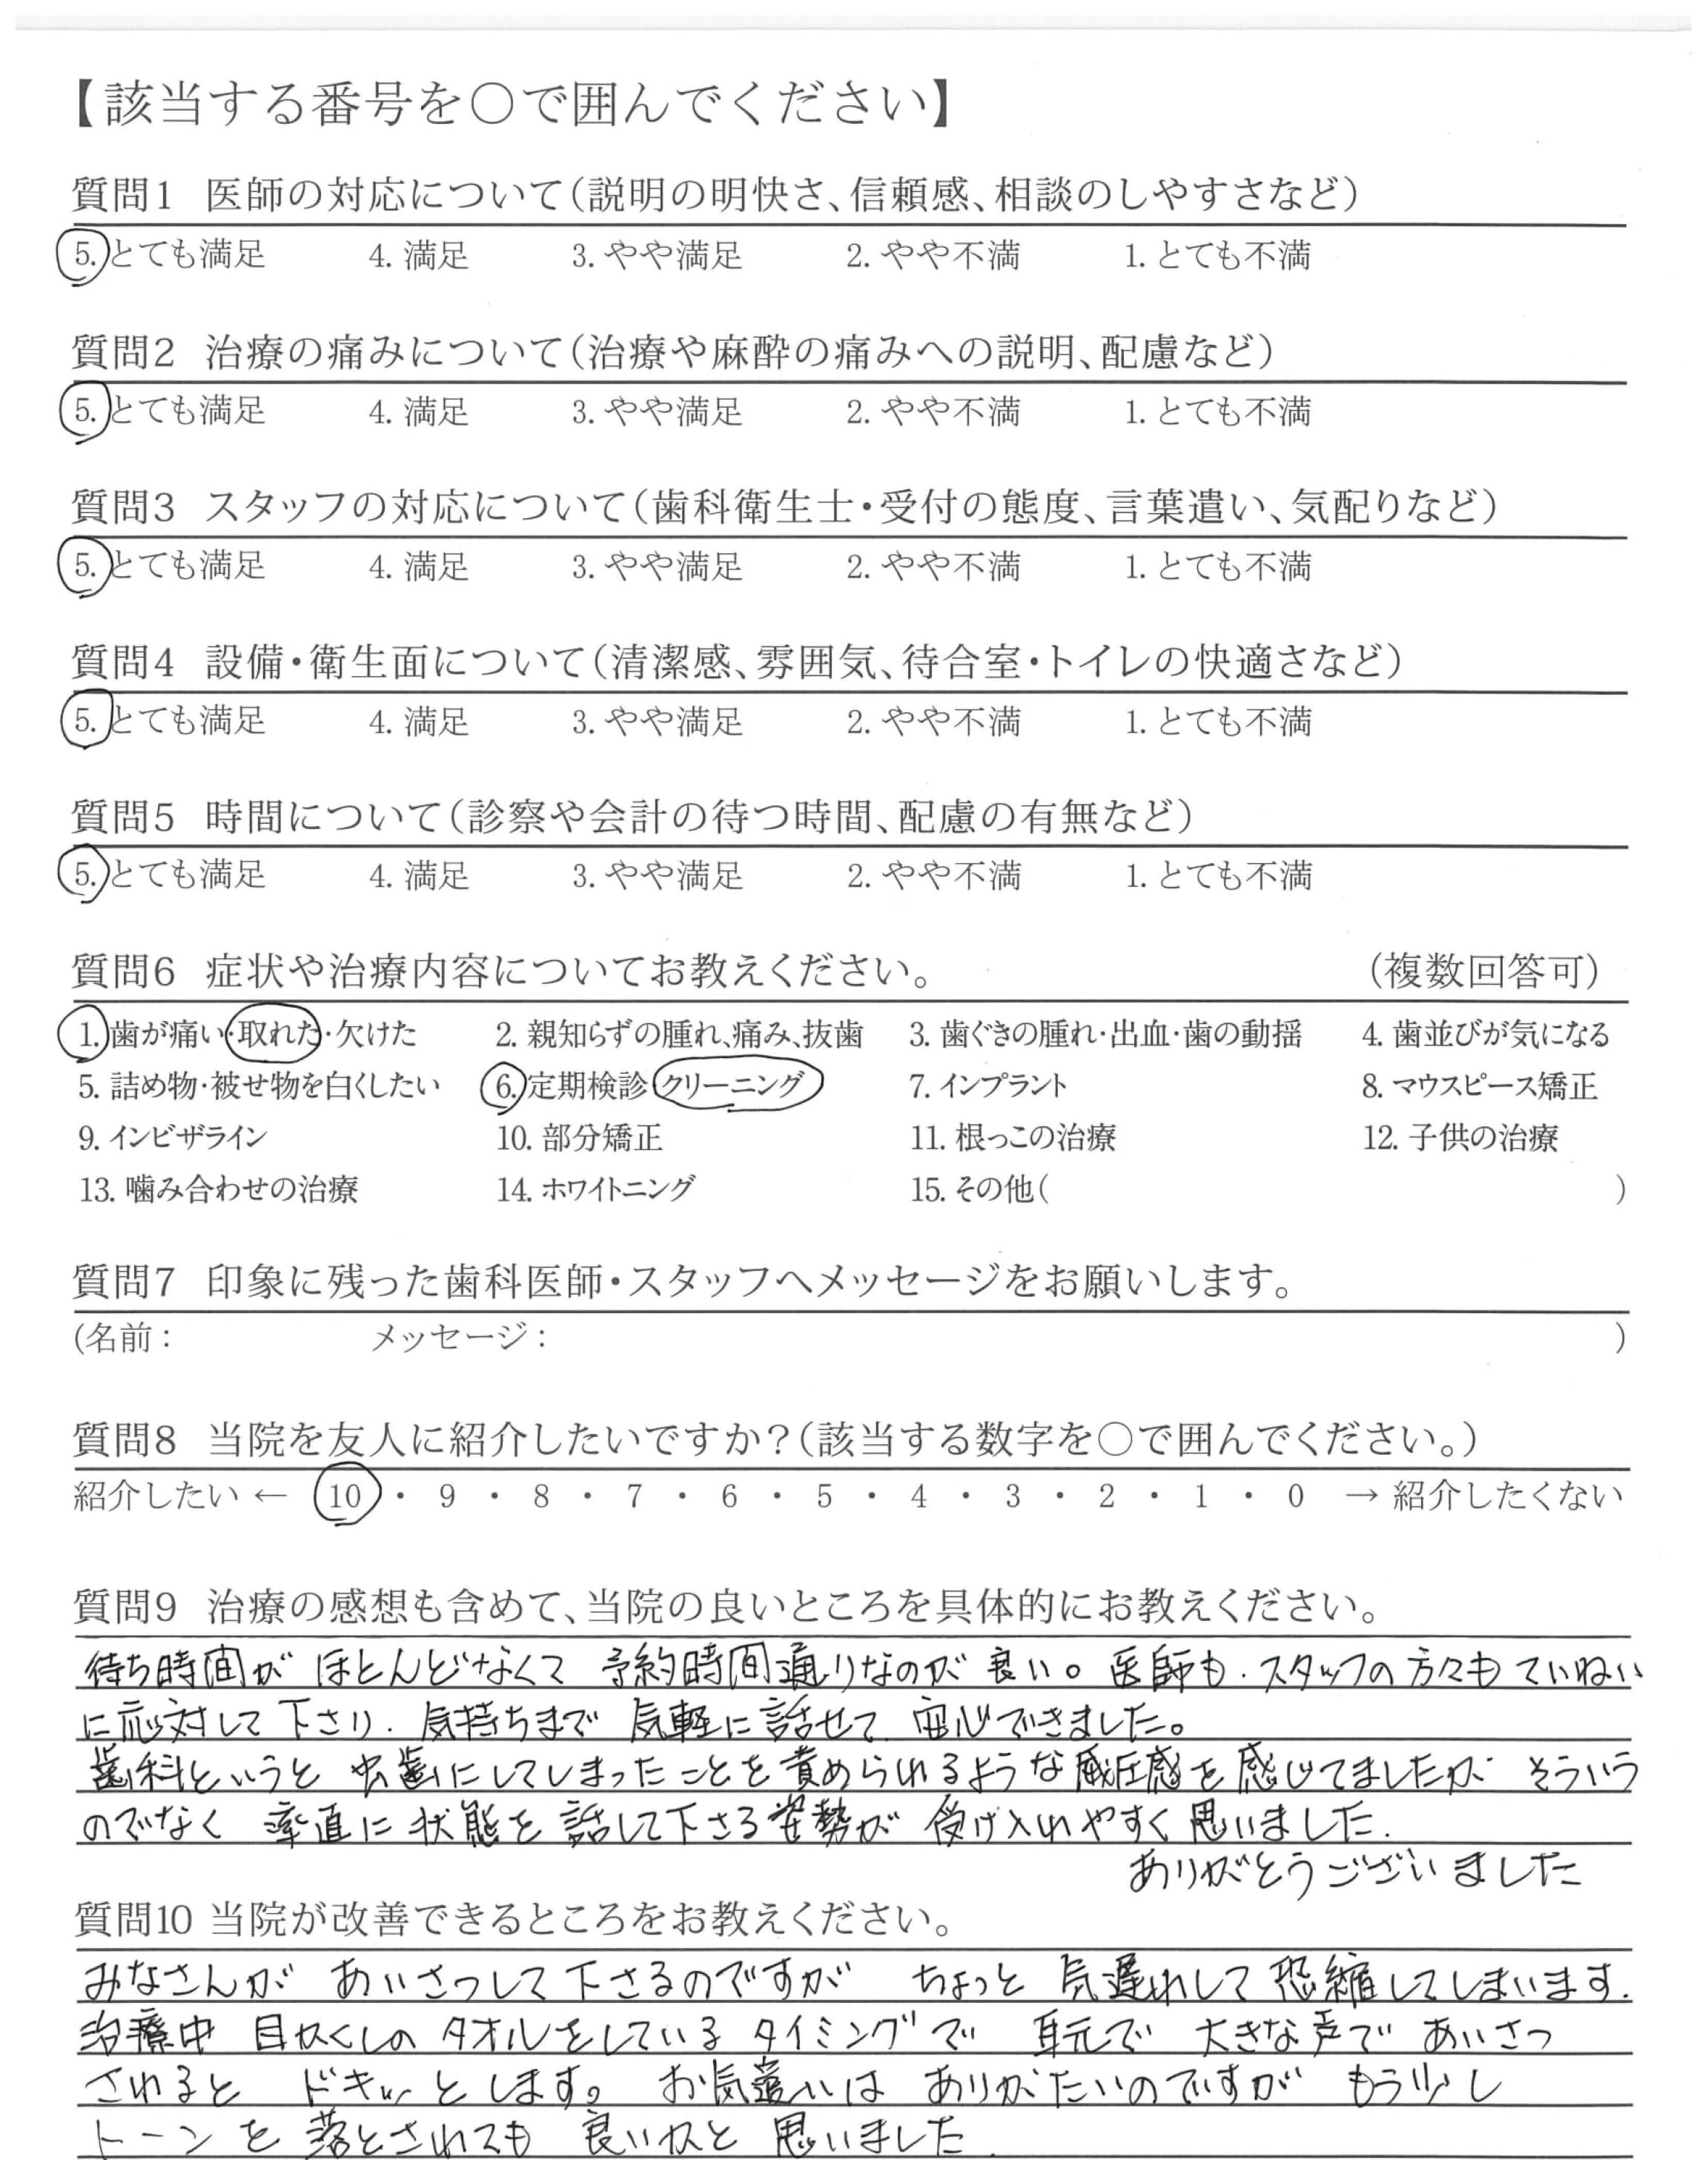 【該当する番号を○で囲んでください】
質問1 医師の対応について(説明の明快さ、信頼感、相談のしやすさなど)
5. とても満足 4. 満足 3. やや満足 2. やや不満 1. とても不満
質問2 治療の痛みについて(治療や麻酔の痛みへの説明、配慮など)
5. とても満足 4. 満足 3. やや満足 2. やや不満 1. とても不満
質問3 スタッフの対応について(歯科衛生士・受付の態度、言葉遣い、気配りなど)
5. とても満足 4. 満足 3. やや満足 2. やや不満 1. とても不満
質問4 設備・衛生面について(清潔感、雰囲気、待合室・トイレの快適さなど)
5. とても満足 4. 満足 3. やや満足 2. やや不満 1. とても不満
質問5 時間について(診察や会計の待つ時間、配慮の有無など)
5. とても満足 4. 満足 3. やや満足 2. やや不満 1. とても不満
質問6 症状や治療内容についてお教えください。 (複数回答可)
1. 歯が痛い・取れた・欠けた 2. 親知らずの腫れ、痛み、抜歯 3. 歯ぐきの腫れ・出血・歯の動揺 4. 歯並びが気になる
5. 詰め物・被せ物を白くしたい 6. 定期検診 クリーニング 7. インプラント 8. マウスピース矯正
9. インビザライン 10. 部分矯正 11. 根っこの治療 12. 子供の治療
13. 噛み合わせの治療 14. ホワイトニング 15. その他( )
質問7 印象に残った歯科医師・スタッフへメッセージをお願いします。
(名前: メッセージ: )
質問8 当院を友人に紹介したいですか?(該当する数字を○で囲んでください。)
紹介したい ← 10 ・ 9 ・ 8 ・ 7 ・ 6 ・ 5 ・ 4 ・ 3 ・ 2 ・ 1 ・ 0 → 紹介したくない
質問9 治療の感想も含めて、当院の良いところを具体的にお教えください。
待ち時間が ほとんどなくて 予約時間通りなのが 良い。医師も、スタッフの方々もていねい
に応対して下さり、気持ちまで 気軽に話せて 安心できました。
歯科というと 虫歯にしてしまったことを責められるような威圧感を感じてましたが そういう
のでなく 率直に状態を話して下さる姿勢が 受け入れやすく思いました.
ありがとうございました
質問10 当院が改善できるところをお教えください。
みなさんが あいさつして下さるのですが ちょっと 気遅れして恐縮してしまいます.
治療中 目かくしの タオルをしている タイミングで 耳元で 大きな声で あいさつ
されると ドキッ とします。 お気遣いは ありがたいのですが もう少し
トーンを 落とされても 良いかと 思いました.